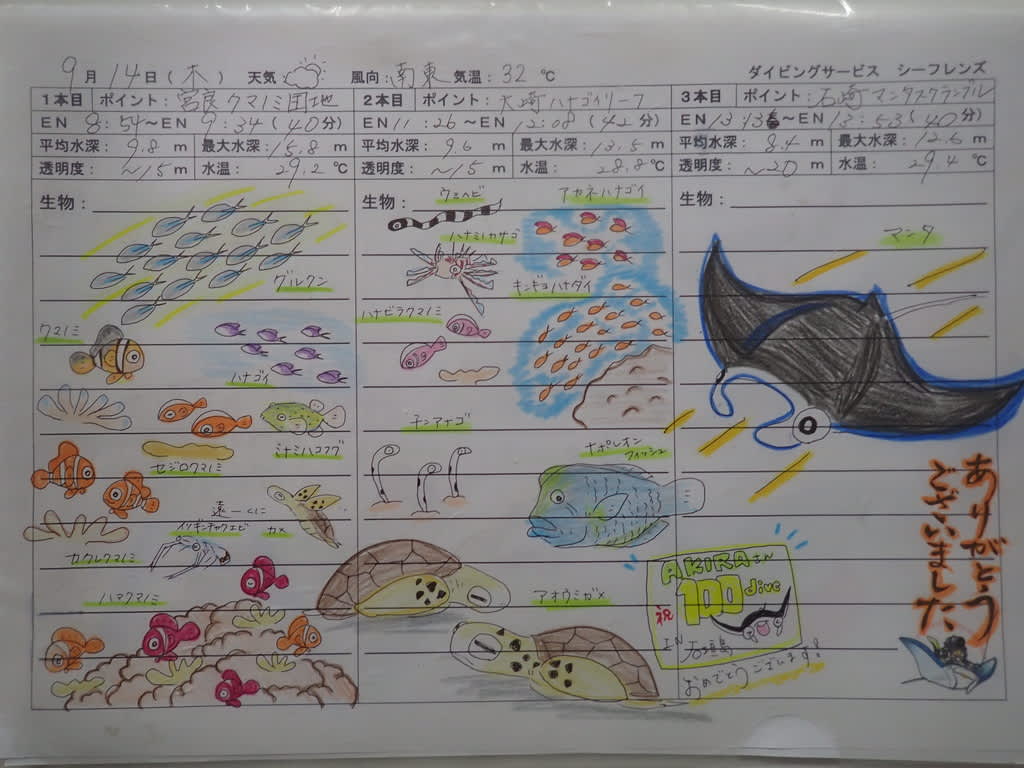 9月14日(木) 天気: 風向:南東 気温:32℃
ダイビングサービス シーフレンズ
1本目 ポイント:宮良クマノミ団地
EN 8:54~EN 9:34(40分)
平均水深:9.8m 最大水深:15.8m
透明度:~15m 水温:29.2℃
生物:
グルクン
クマノミ
ハナゴイ
ミナミハコフグ
セジロクマノミ
遠ーくに
イソギンチャクエビ
カメ
カクレクマノミ
ハマクマノミ
2本目 ポイント:大崎ハナゴイリーフ
EN 11:26~EN 12:08(42分)
平均水深:9.6m 最大水深:13.5m
透明度:~15m 水温:28.8℃
生物:
ウミヘビ
アカネハナゴイ
ハナミノカサゴ
キンギョハナダイ
ハナビラクマノミ
チンアナゴ
ナポレオン
フィッシュ
アオウミガメ
3本目 ポイント:石崎マンタスクランブル
EN 13:13~EN 13:53(40分)
平均水深:8.4m 最大水深:12.6m
透明度:~20m 水温:29.4℃
生物:
マンタ
AKIRAさん
祝 100 dive
IN 石垣島
おめでとうございます!
ありがとう
ございました